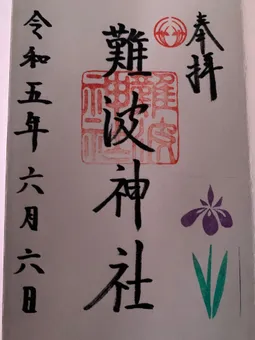 奉拝
難波神社
難波神社
令和五年六月六日